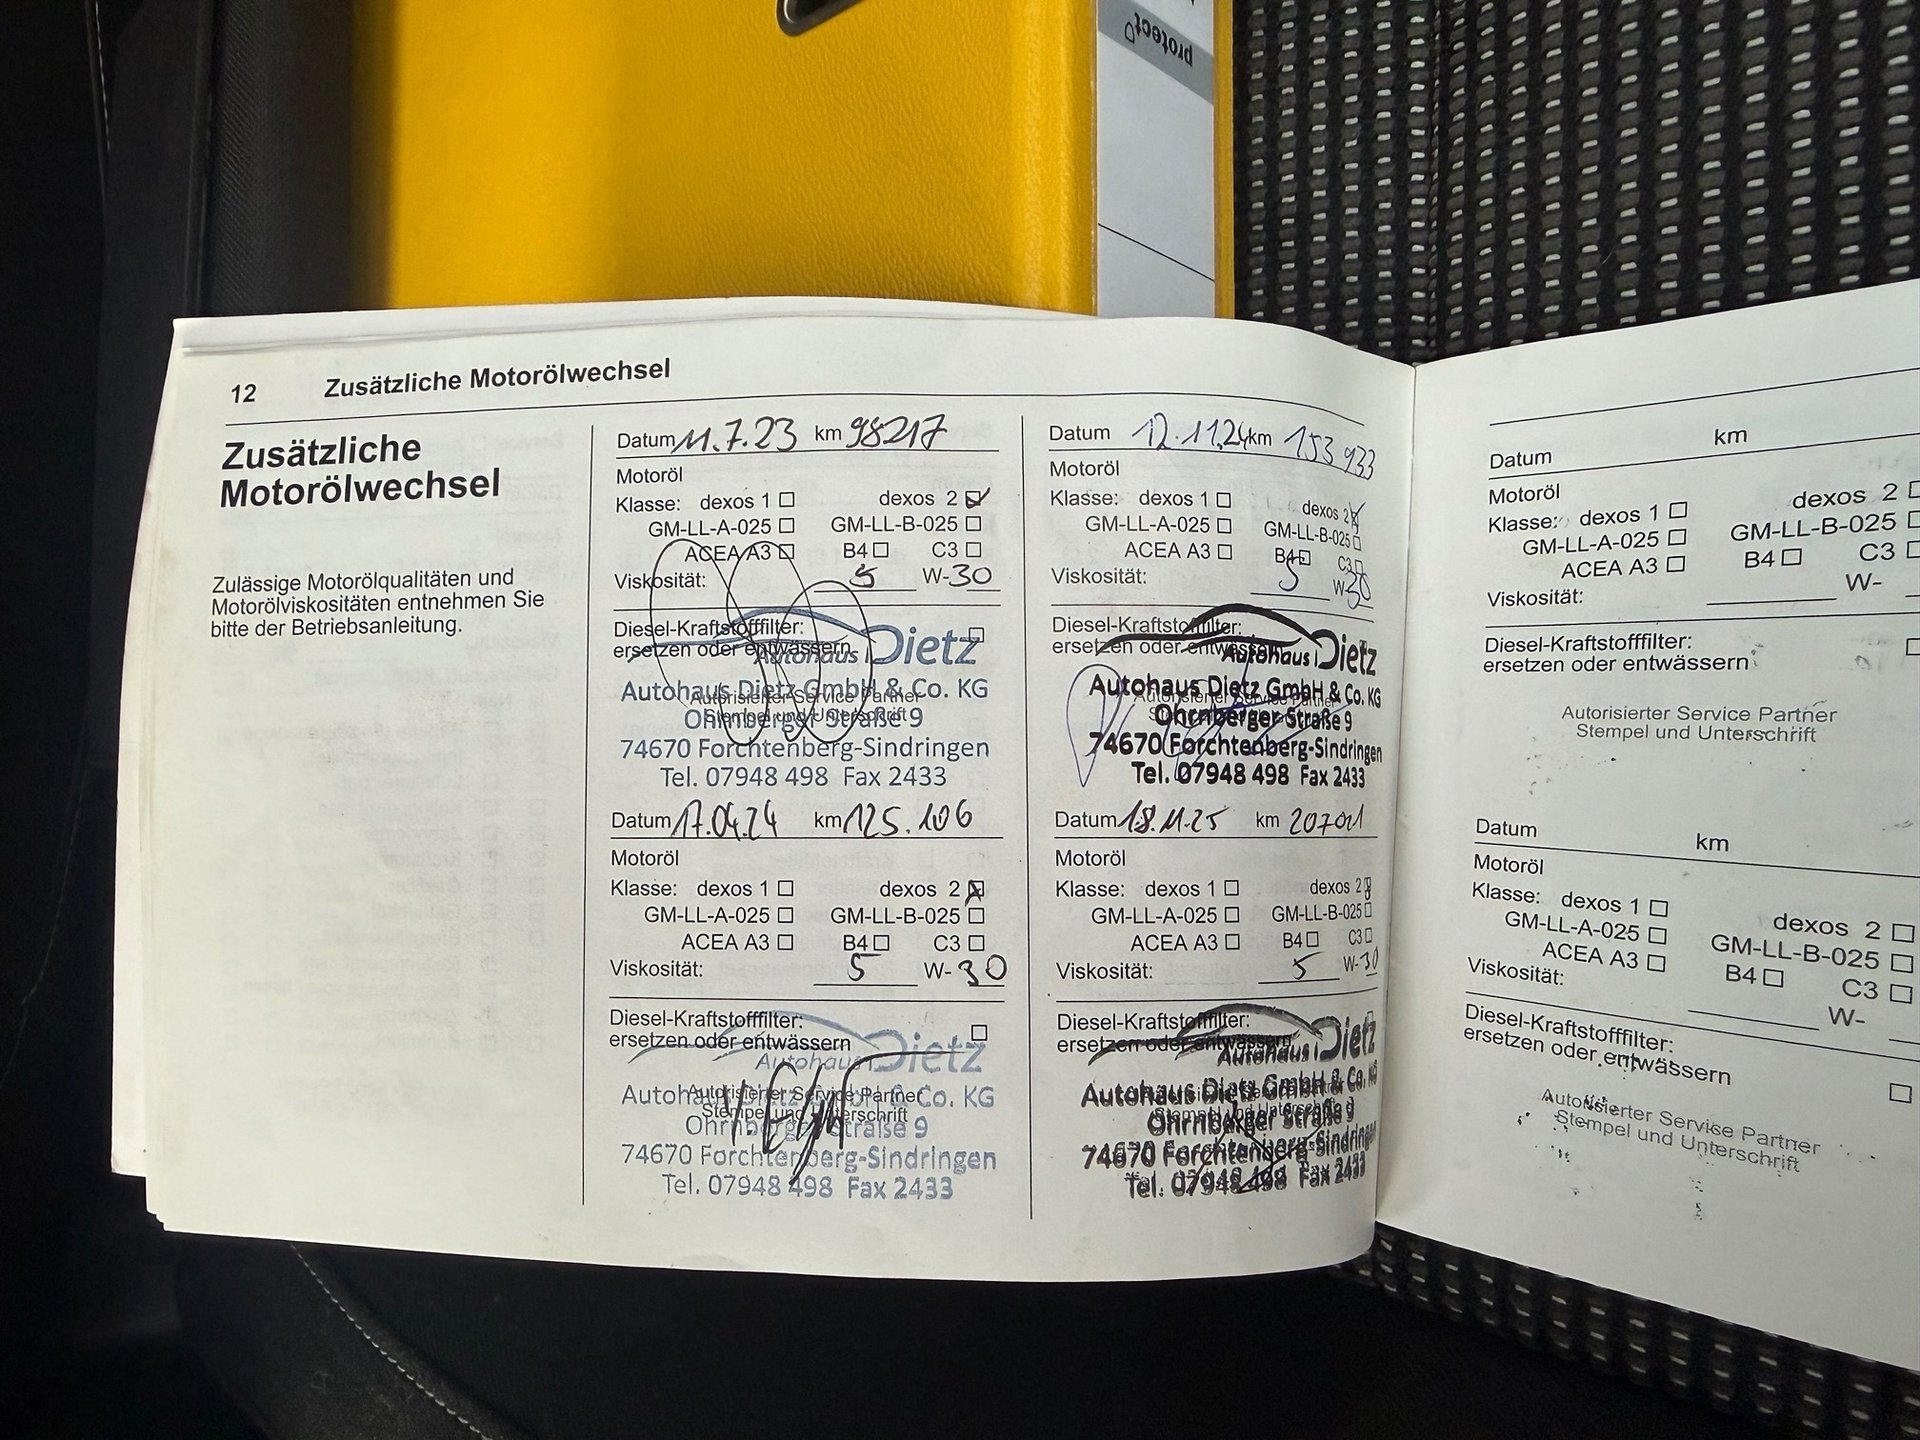 protect
12 Zusätzliche Motorölwechsel
Zusätzliche
Motorölwechsel
Zulässige Motorölqualitäten und
Motorölviskositäten entnehmen Sie
bitte der Betriebsanleitung.
Datum 11.7.23 km 98217
Motoröl
Klasse: dexos 1 dexos 2
GM-LL-A-025 GM-LL-B-025
ACEA A3 B4 C3
Viskosität: 5 W-30
Diesel-Kraftstofffilter:
ersetzen oder entwässern
Autohaus Dietz
Autorisierter Service Partner
Stempel und Unterschrift
Autohaus Dietz GmbH & Co. KG
Ohrnberger Straße 9
74670 Forchtenberg-Sindringen
Tel. 07948 498 Fax 2433
Datum 17.04.24 km 125.106
Motoröl
Klasse: dexos 1 dexos 2
GM-LL-A-025 GM-LL-B-025
ACEA A3 B4 C3
Viskosität: 5 W-30
Diesel-Kraftstofffilter:
ersetzen oder entwässern
Autohaus Dietz
Autorisierter Service Partner
Stempel und Unterschrift
Autohaus Dietz GmbH & Co. KG
Ohrnberger Straße 9
74670 Forchtenberg-Sindringen
Tel. 07948 498 Fax 2433
Datum 12.11.24 km 153 933
Motoröl
Klasse: dexos 1 dexos 2
GM-LL-A-025 GM-LL-B-025
ACEA A3 B4 C3
Viskosität: 5 W-30
Diesel-Kraftstofffilter:
ersetzen oder entwässern
Autohaus Dietz
Autorisierter Service Partner
Autohaus Dietz GmbH & Co. KG
Ohrnberger Straße 9
74670 Forchtenberg-Sindringen
Tel. 07948 498 Fax 2433
Datum 18.11.25 km 207011
Motoröl
Klasse: dexos 1 dexos 2
GM-LL-A-025 GM-LL-B-025
ACEA A3 B4 C3
Viskosität: 5 W-30
Diesel-Kraftstofffilter:
ersetzen oder entwässern
Autohaus Dietz
Autohaus Dietz GmbH & Co. KG
Ohrnberger Straße 9
74670 Forchtenberg-Sindringen
Tel. 07948 498 Fax 2433
Datum km
Motoröl
Klasse: dexos 1 dexos 2
GM-LL-A-025 GM-LL-B-025
ACEA A3 B4 C3
Viskosität: W-
Diesel-Kraftstofffilter:
ersetzen oder entwässern
Autorisierter Service Partner
Stempel und Unterschrift
Datum km
Motoröl
Klasse: dexos 1 dexos 2
GM-LL-A-025 GM-LL-B-025
ACEA A3 B4 C3
Viskosität: W-
Diesel-Kraftstofffilter:
ersetzen oder entwässern
Autorisierter Service Partner
Stempel und Unterschrift